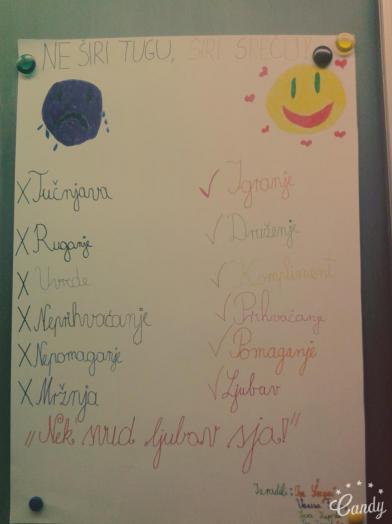 NE ŠIRI TUGU, ŠIRI SREĆU!
X Tučnjava
X Ruganje
X Uvrede
X Neprihvaćanje
X Nepomaganje
X Mržnja
✓ Igranje
✓ Druženje
✓ Kompliment
✓ Prihvaćanje
✓ Pomaganje
✓ Ljubav
„Nek svud ljubav sja!"
Izradili:
Candy